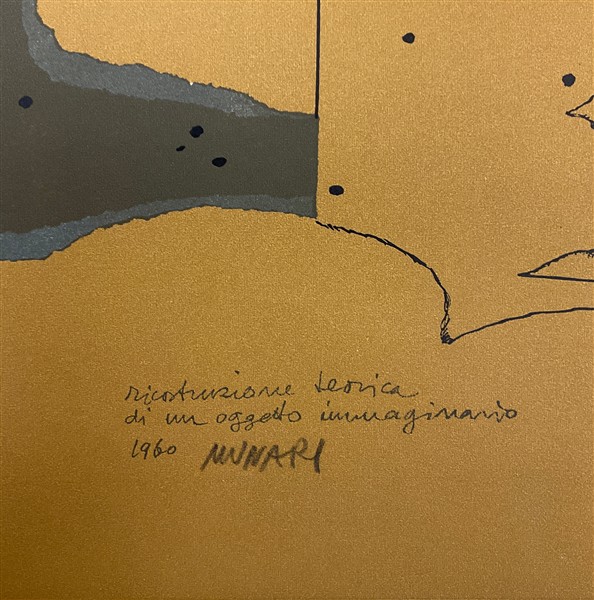 ricostruzione teorica
di un oggetto immaginario
1960 MUNARI